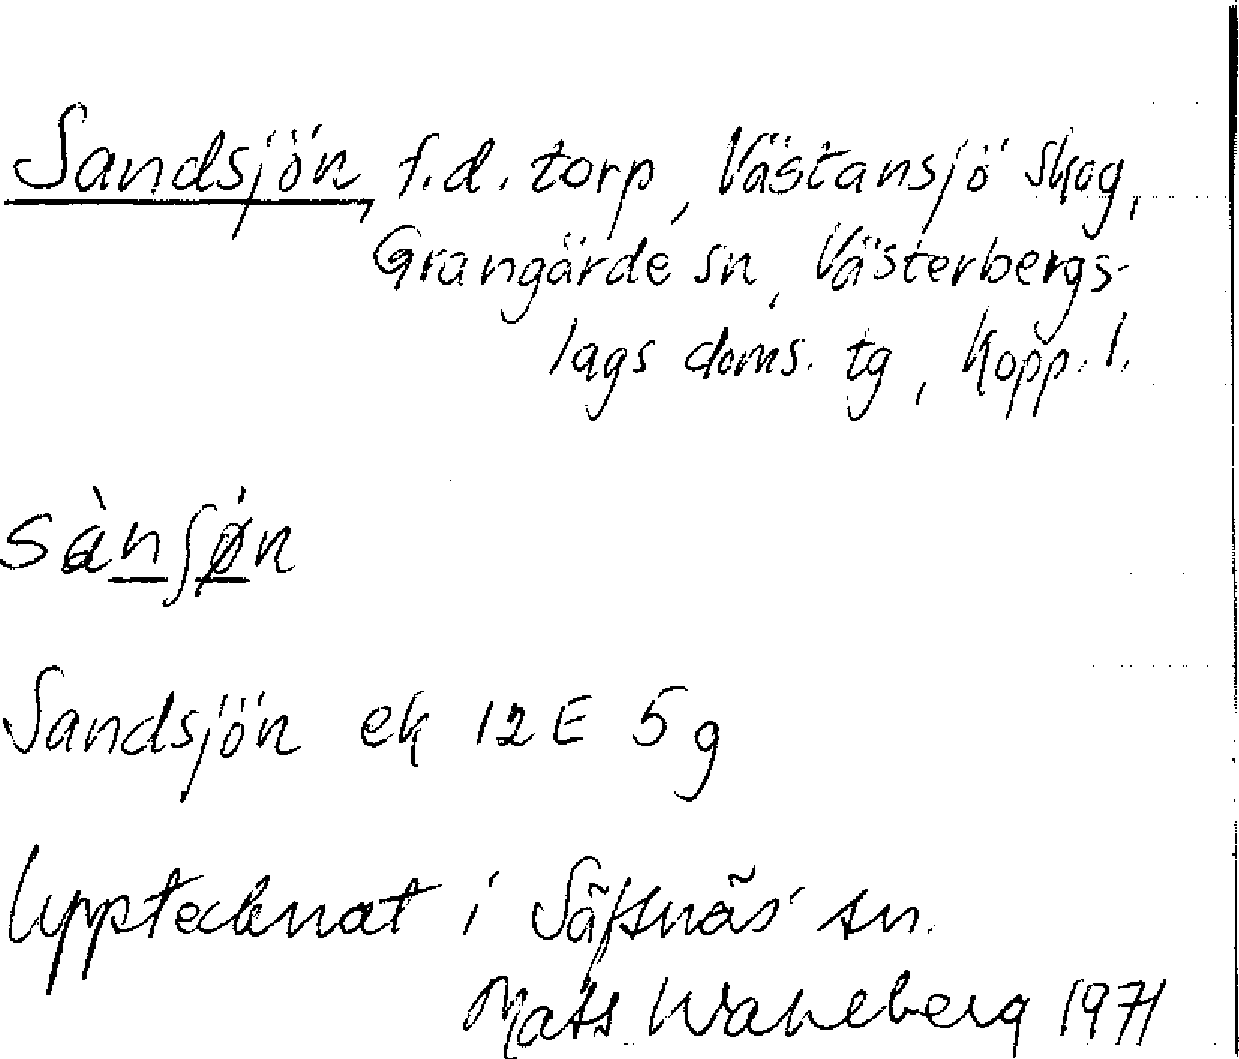 Sandsjön, f.d. torp, Västansjö skog,
Grangärde sn, Västerbergs-
lags doms. tg, Kopp. l.
sànʃø̀n
Sandsjön ek 12E 5g
Upptecknat i Säfsnäs sn.
Mats Wahlberg 1971